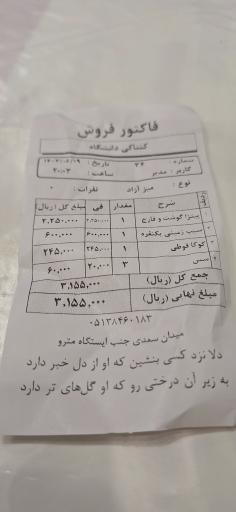 فاکتور فروش
کنتاکی دانشگاه
شماره : ۳۴ تاریخ : ۱۴۰۲/۰۶/۱۹
کاربر : مدیر ساعت : ۲۰:۰۳
نوع : میز آزاد نفرات : ۰
ردیف شرح مقدار فی مبلغ کل (ریال)
۱ پیتزا گوشت و قارچ ۱ ۲,۲۵۰,۰۰۰ ۲,۲۵۰,۰۰۰
۲ سیب زمینی یکنفره ۱ ۶۰۰,۰۰۰ ۶۰۰,۰۰۰
۳ کوکا قوطی ۱ ۲۴۵,۰۰۰ ۲۴۵,۰۰۰
۴ سس ۳ ۲۰,۰۰۰ ۶۰,۰۰۰
جمع کل (ریال) ۳,۱۵۵,۰۰۰
مبلغ نهایی (ریال) ۳,۱۵۵,۰۰۰
۰۵۱۳۸۴۶۰۱۸۳
میدان سعدی جنب ایستگاه مترو
دلا نزد کسی بنشین که او از دل خبر دارد
به زیر آن درختی رو که او گل‌های تر دارد